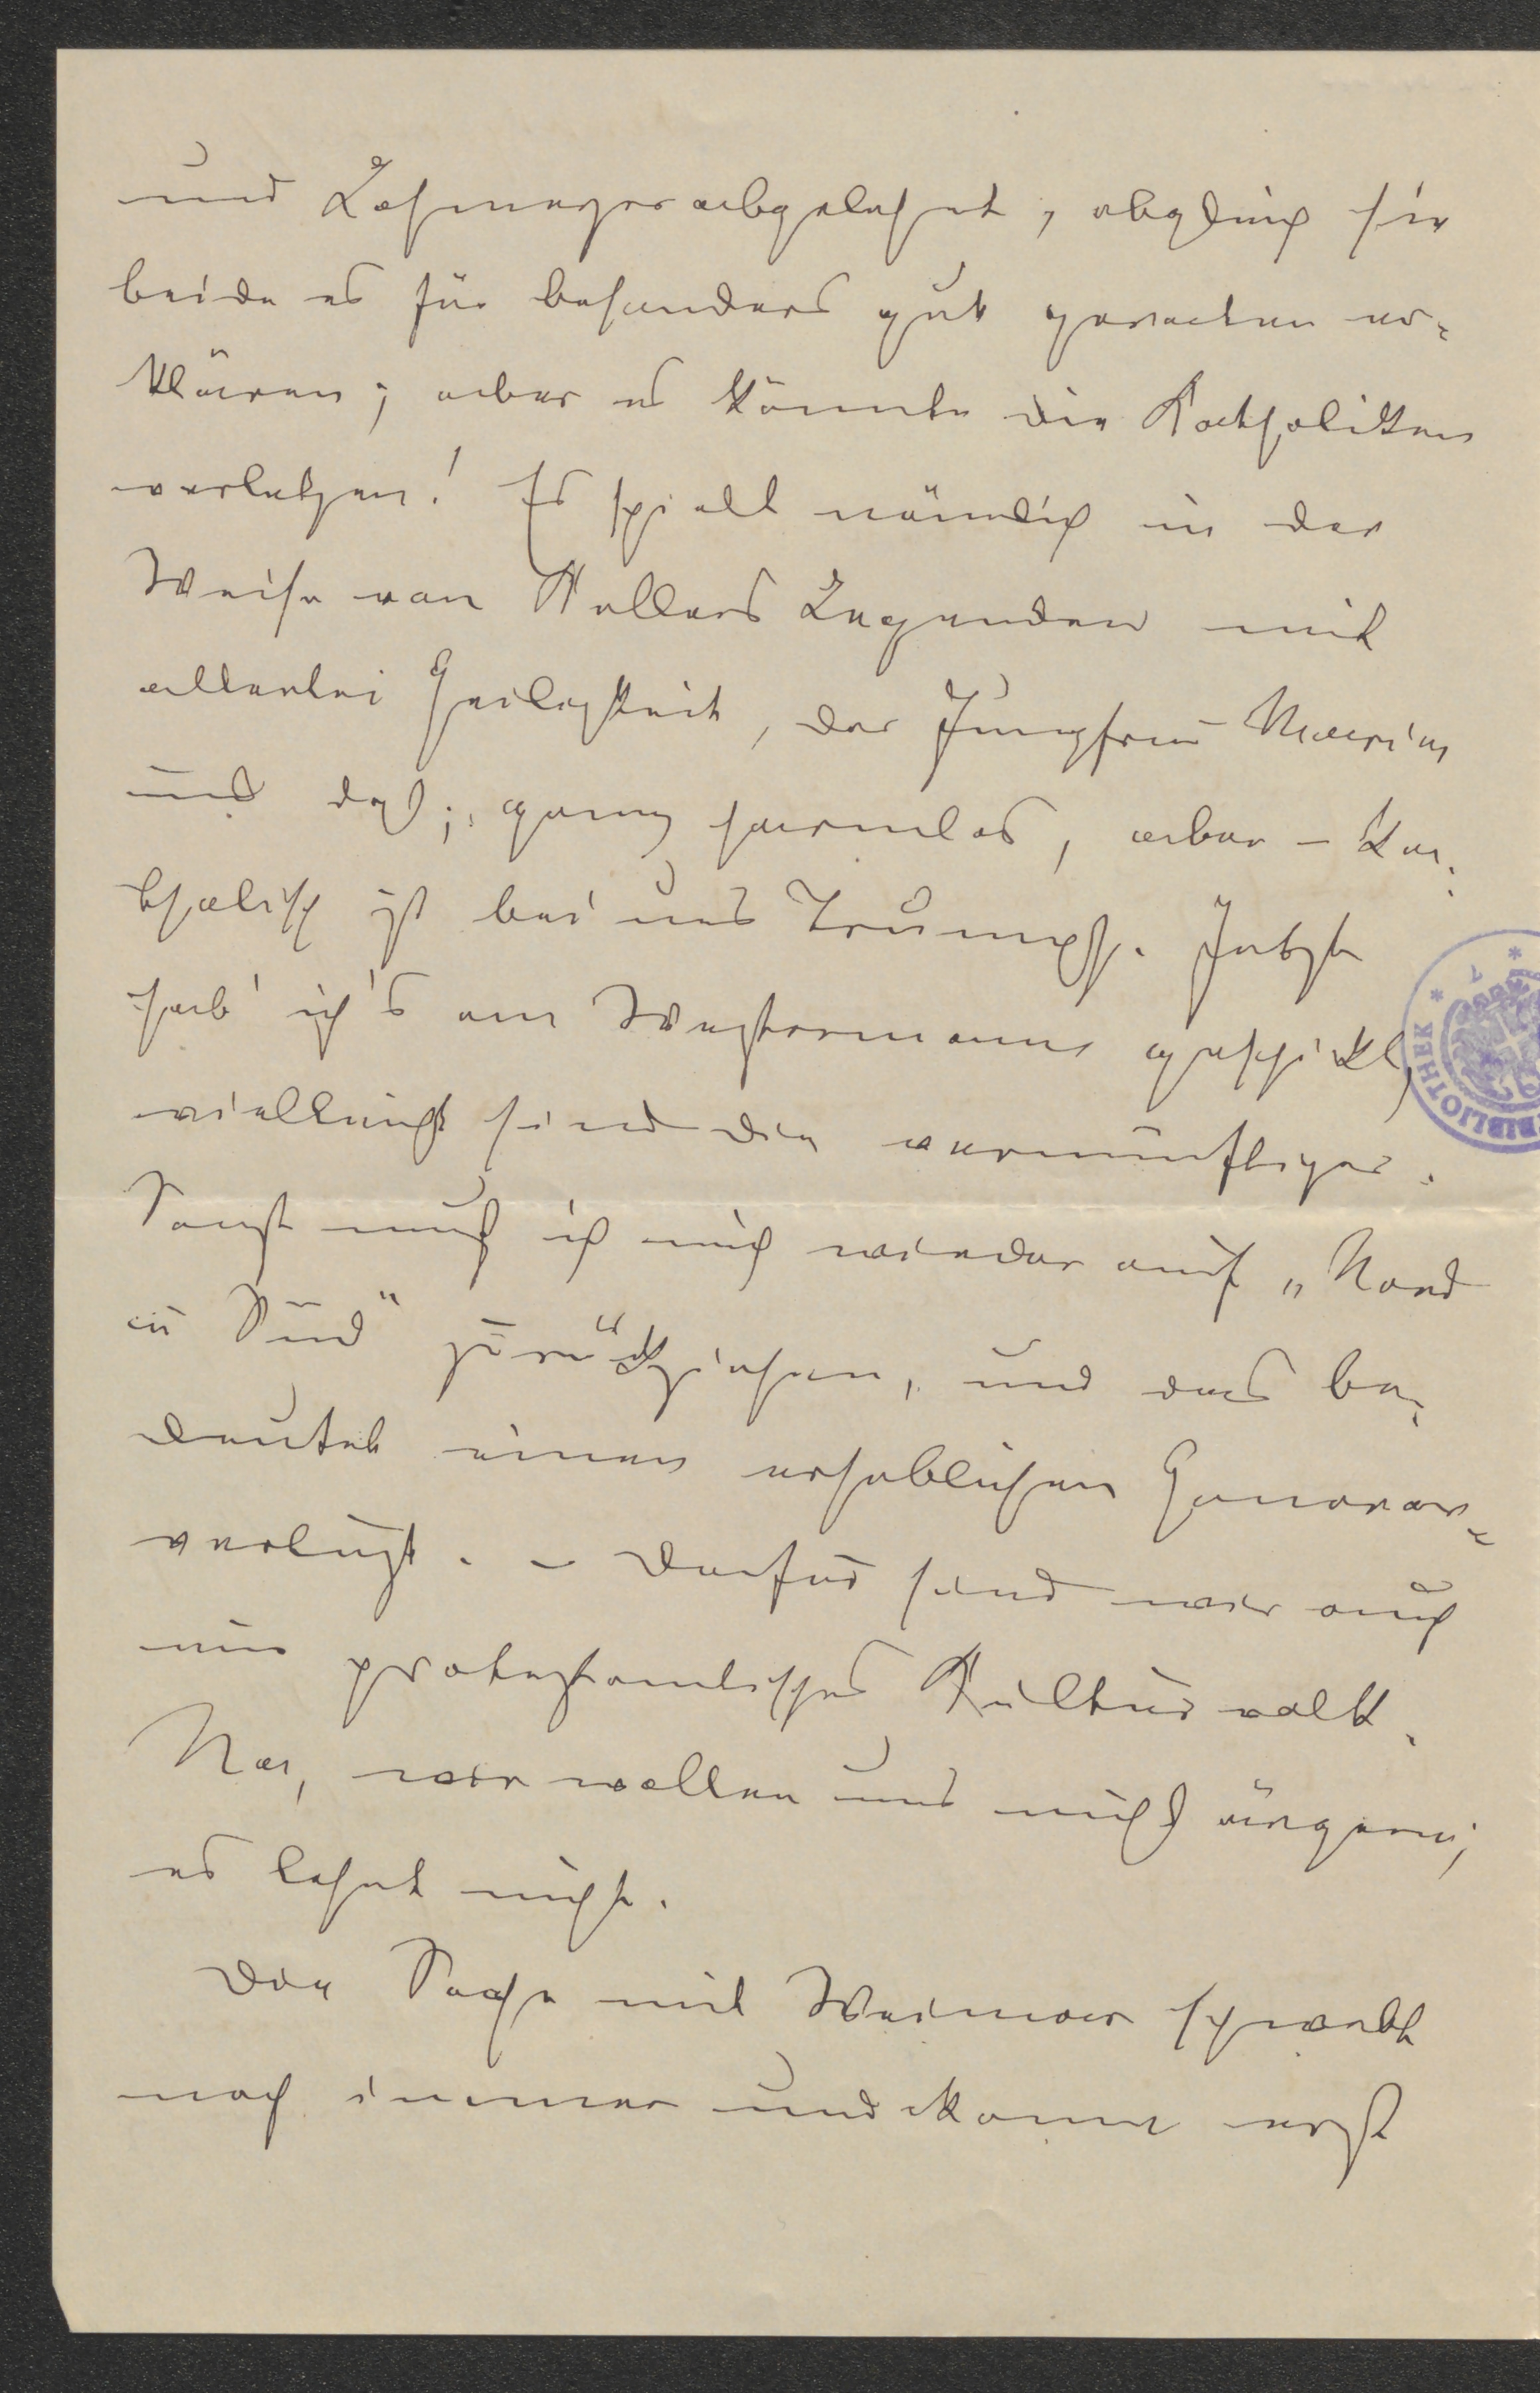 und Lohmeyer abgelehnt, obgleich sie
beide es für besonders gut geraten er-
klären; aber es könnte die Kathpoliken
verletzen! Es spielt nämlich in der
Weise von Kellers Legenden mit
allerlei Heiligkeit, der Jungfrau Maria
und dgl; ganz harmlos, aber – ka-
tholisch ist bei uns Trumpf. Jetzt
hab' ich's an Westermann geschickt,
vielleicht sind die vernünftiger.
Sonst muß ich mich wieder auf „Nord
u Süd“ zurückziehen, und das be-
deutet einen erheblichen Honorar-
verlust. – Dafür sind wir auch
ein protestantisches Kulturvolk.
Na, wir wollen uns nicht ärgern;
es lohnt nicht.
Die Sache mit Weimar schwebt
noch immer und kann erst
BIBLIOTHEK